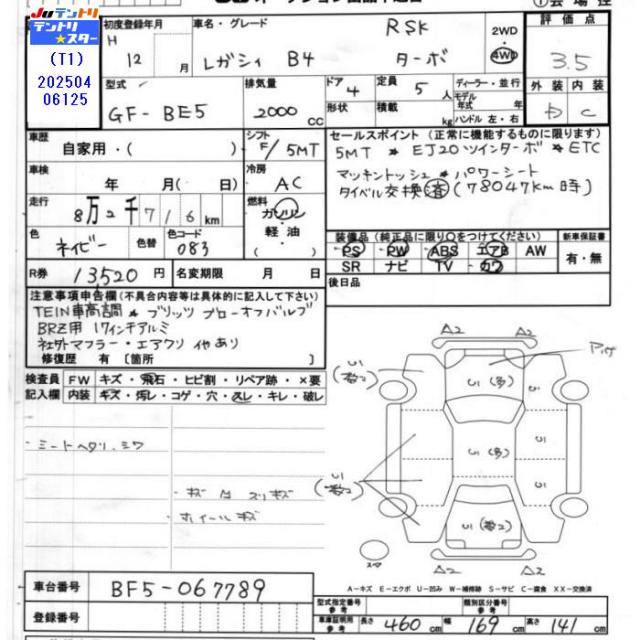 JUテントリ
テントリ
★スター
(T1)
202504
06125
初度登録年月
H
12
月
車名・グレード
レガシィ B4
RSK
ターボ
2WD
4WD
評価点
3.5
外装 内装
C
型式
GF-BE5
排気量
2000
CC
ドア
4
定員
5
人
形状
積載
kg
ディーラー・並行
モデル
年式 年
ハンドル 左・右
車歴
自家用・( )
シフト
F/5MT
セールスポイント(正常に機能するものに限ります)
5MT * EJ20ツインターボ * ETC
マッキントッシュ * パワーシート
タイベル交換済(78047km時)
車検
年 月( 日)
冷房
AC
走行
8万2千716km
燃料
ガソリン
軽油
( )
色
ネイビー
色替
色コード
083
装備品(純正品に限り○をつけてください)
PS PW ABS エアB AW
SR ナビ TV カワ
新車保証書
有・無
R券
13,520円
名変期限
月 日
後日品
注意事項申告欄(不具合内容等は具体的に記入して下さい)
TEIN車高調 * ブリッツ ブローオフバルブ
BRZ用 17インチアルミ
社外マフラー・エアクリ イヤあり
修復歴 有〔箇所 〕
検査員
記入欄
FW キズ・飛石・ヒビ割・リペア跡・×要
内装 キズ・汚レ・コゲ・穴・スレ・キレ・破レ
シートヘタリ、シワ
ホイールキズ
A2 A2
U1
U1(多)
U1
U1(多)
U1
U1
A2 A2
スマ
車台番号
BF5-067789
登録番号
A-キズ E-エクボ U-凹み W-補修跡 S-サビ C-腐食 XX-交換済
型式指定番号
参考
類別区分番号
参考
車庫証明用
参考
長さ
460
cm
幅
169
cm
高さ
141
cm